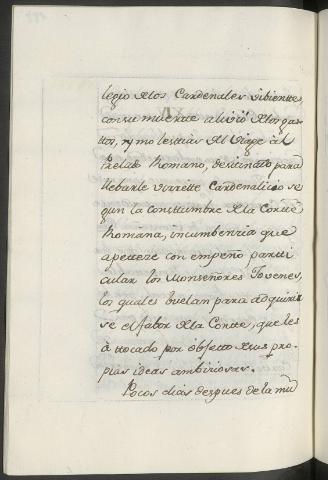 legio de los Cardenales vibientes,
con su muerte alivió de los gas-
tos, y molestias del Viage al
Prelado Romano, destinato para
llebarle virrette Cardenalicio se
gun la constumbre de la Corte
Romana, incumbenzia que
apetteze con empeño partti
cular los Monseñores Jovenes,
los quales buelan para adquirir
se el fabor de la Corte, que les
à ttocado por objetto de sus pro-
pias ideas ambiziosas.
Pocos dias despues de la mu